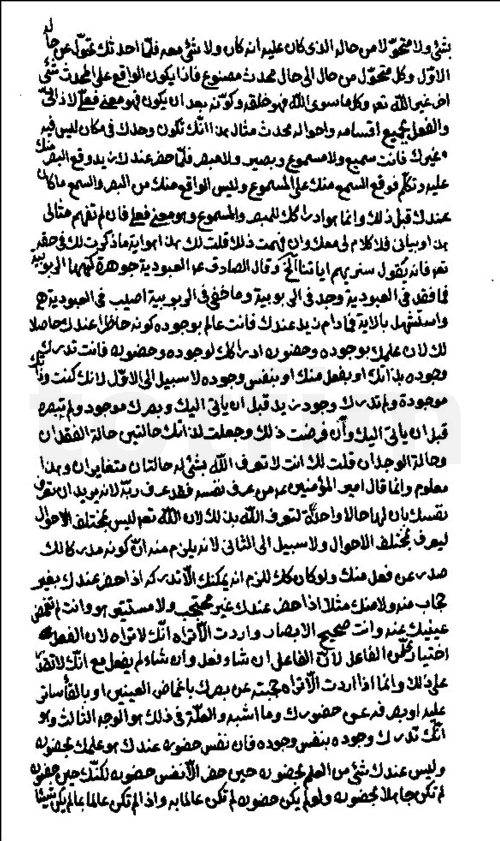 بشئ ولا متحوّلا من حاله الذى كان عليه انه كان ولا شئ معه فلمّا احدثك تحوّل عن حاله
الاوّل وكل متحوّل من حال الى حال محدث مصنوع فاذا يكون الواقع على المحدث شئ
اخر غير اللّه تعم وكل ما سوى اللّه فهو خلقه وكوّنه بعد ان يكون فهو معنى فعلى لا ذاتى
والفعل بجميع اقسامه واحواله محدث مثال هذا انّك تكون وحدك فى مكان ليس فيه
غيرك فانت سميع ولا مسموع وبصير ولا مبصر فلمّا حضر عندك زيد وقع البصر منك
عليه وتكلّم فوقع السمع منك على المسموع وليس الواقع منك من البصر والسمع ما كان
عندك قبل ذلك وانما هو ادراكك للمبصر والمسموع وهو معنى فعلى فان لم تفهم مثالى
هذا وبيانى فلا كلام لى معك وان فهمت ذلك قلت لك هذا هو اية ما ذكرت لك فى حقه
تعم فانه يقول سنريهم اياتنا الخ وقال الصادق ع العبودية جوهرة كنهها الربوبية
فما فقد فى العبودية وجد فى الربوبية وما خفى فى الربوبية اصيب فى العبودية
واستشهد بالاية فمادام زيد عندك فانت عالم بوجوده كونه حاضرا عندك حاصلا
لك لان علمك بوجوده وحضوره ادراكك لوجوده وحضوره فانت تدرك
وجوده بذاتك او بفعل منك او بنفس وجوده لا سبيل الى الاوّل لانك كنت وذاتك
موجودة ولم تدرك وجود زيد قبل ان ياتى اليك وبصرك موجود ولم تبصره
قبل ان ياتى اليك وأن فرضت ذلك وجعلت لذاتك حالتين حالة الفقدان
وحالة الوجدان قلت لك انت لا تعرف اللّه بشئ له حالتان متغايران وهذا
معلوم وانما قال امير المؤمنين ع من عرف نفسه فقد عرف ربّه لانه يريد ان تعرف
نفسك بان لها حالا واحدة لتعرف اللّه بذلك لان اللّه تعم ليس بمختلف الاحوال
ليعرف بمختلف الاحوال ولا سبيل الى الثانى لانه يلزم منه انّ كونه مدركا لك
صدر عن فعل منك ولو كان كك للزم انه يمكنك الّا تدركه اذا حضر عندك بغير
حجاب منه ولا منك مثلا اذا حضر عندك غير محتجب ولا مستتر هو وانت لم تغمض
عينيك عنه وانت صحيح الابصار واردت الّا تراه انّك لا تراه لان الفعل
اختيارى من الفاعل لانّ الفاعل ان شاء فعل وان شاء لم يفعل مع انّك لا تقدر
على ذلك وانما اذا اردت الّا تراه حجبته عن بصرك باغماض العينين او بالقاء ساتر
عليه او بصرفه عن حضورك وما اشبه والعلّة فى ذلك هو الوجه الثالث وهو
انّك تدرك وجوده بنفس وجوده فان نفس حضوره عندك هو علمك بحضوره
وليس عندك شئ من العلم بحضوره حين حضر الّا نفس حضوره لكنّك حين حضوره
لم تكن جاهلا بحضوره ولو لم يكن حضوره لم تكن عالما به واذا لم تكن عالما بما لم يكن شيئا